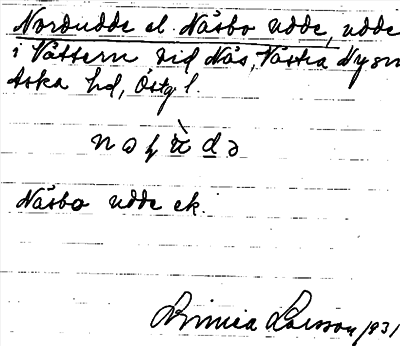 Nordudde el. Näsbo udde, udde
i Vättern vid Näs, Västra Ny sn
Aska hd, Östg l.
Näsbo udde ek.
Linnea Larsson 1931